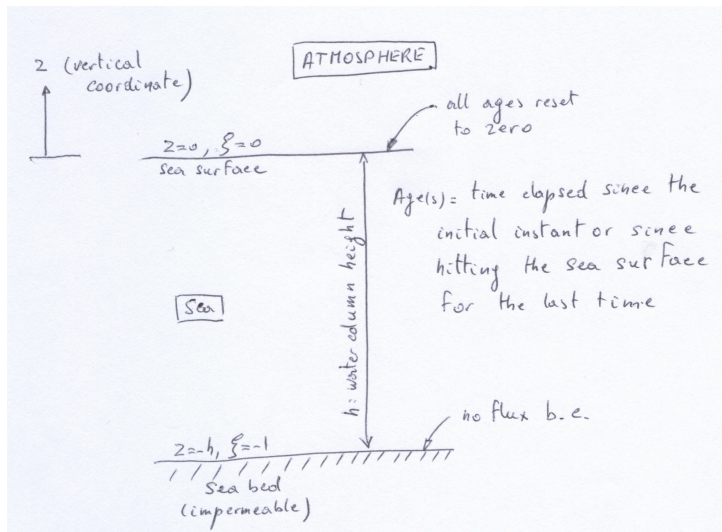 ATMOSPHERE
z (vertical
coordinate)
all ages reset
to zero
z=0, ξ=0
sea surface
Age(s)= time elapsed since the
initial instant or since
hitting the sea surface
for the last time
h: water column height
Sea
no flux b.c.
z=-h, ξ=-1
Sea bed
(impermeable)